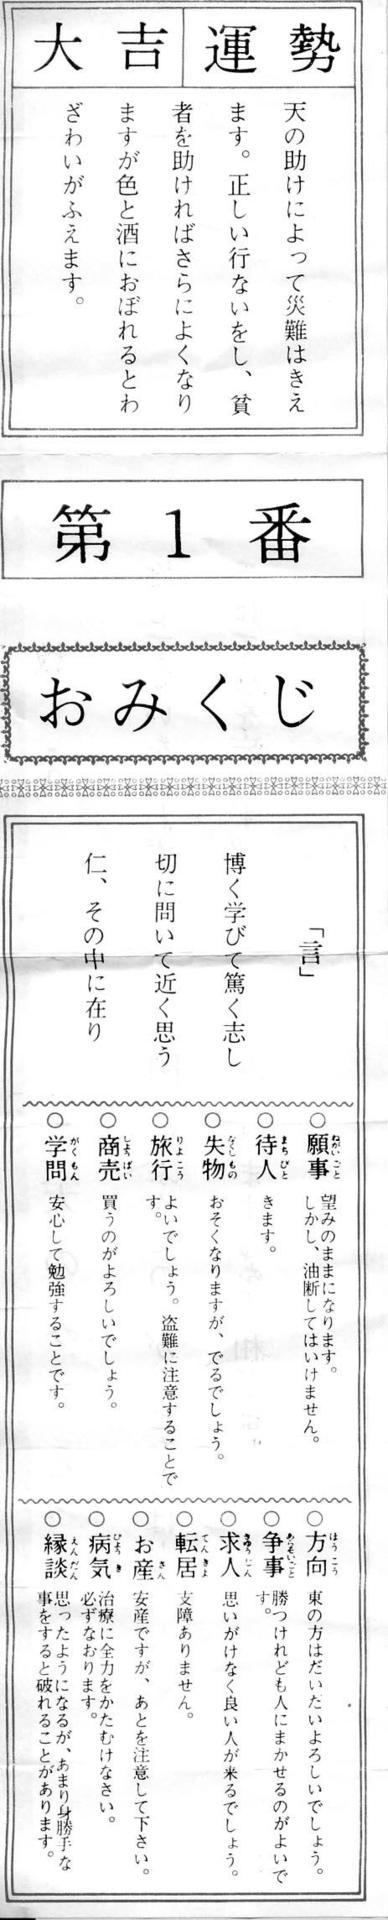 大吉
運勢
天の助けによって災難はきえ
ます。正しい行ないをし、貧
者を助ければさらによくなり
ますが色と酒におぼれるとわ
ざわいがふえます。
第1番
おみくじ
「言」
博く学びて篤く志し
切に問いて近く思う
仁、その中に在り
○願事 ねがいごと 望みのままになります。
しかし、油断してはいけません。
○待人 まちびと きます。
○失物 なくしもの おそくなりますが、でるでしょう。
○旅行 りょこう よいでしょう。盗難に注意することで
す。
○商売 しょうばい 買うのがよろしいでしょう。
○学問 がくもん 安心して勉強することです。
○方向 ほうこう 東の方はだいたいよろしいでしょう。
○争事 あらそいごと 勝つけれども人にまかせるのがよいで
す。
○求人 きゅうじん 思いがけなく良い人が来るでしょう。
○転居 てんきょ 支障ありません。
○お産 さん 安産ですが、あとを注意して下さい。
○病気 びょうき 治療に全力をかたむけなさい。
必ずなおります。
○縁談 えんだん 思ったようになるが、あまり身勝手な
事をすると破れることがあります。